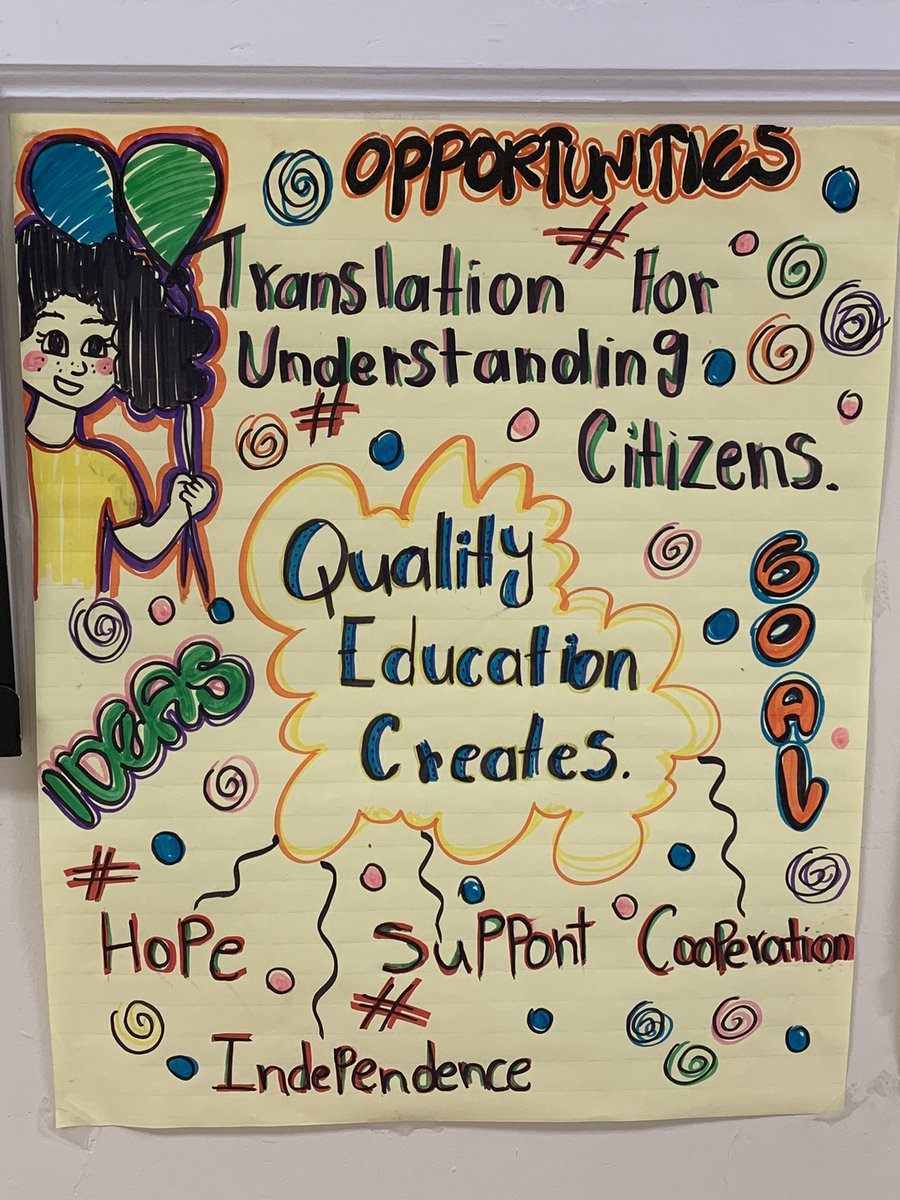 OPPORTUNITIES
#
Translation For
Understanding
#
Citizens.
Quality
Education
Creates.
GOAL
IDEAS
#
Hope
Support
Cooperation
#
Independence